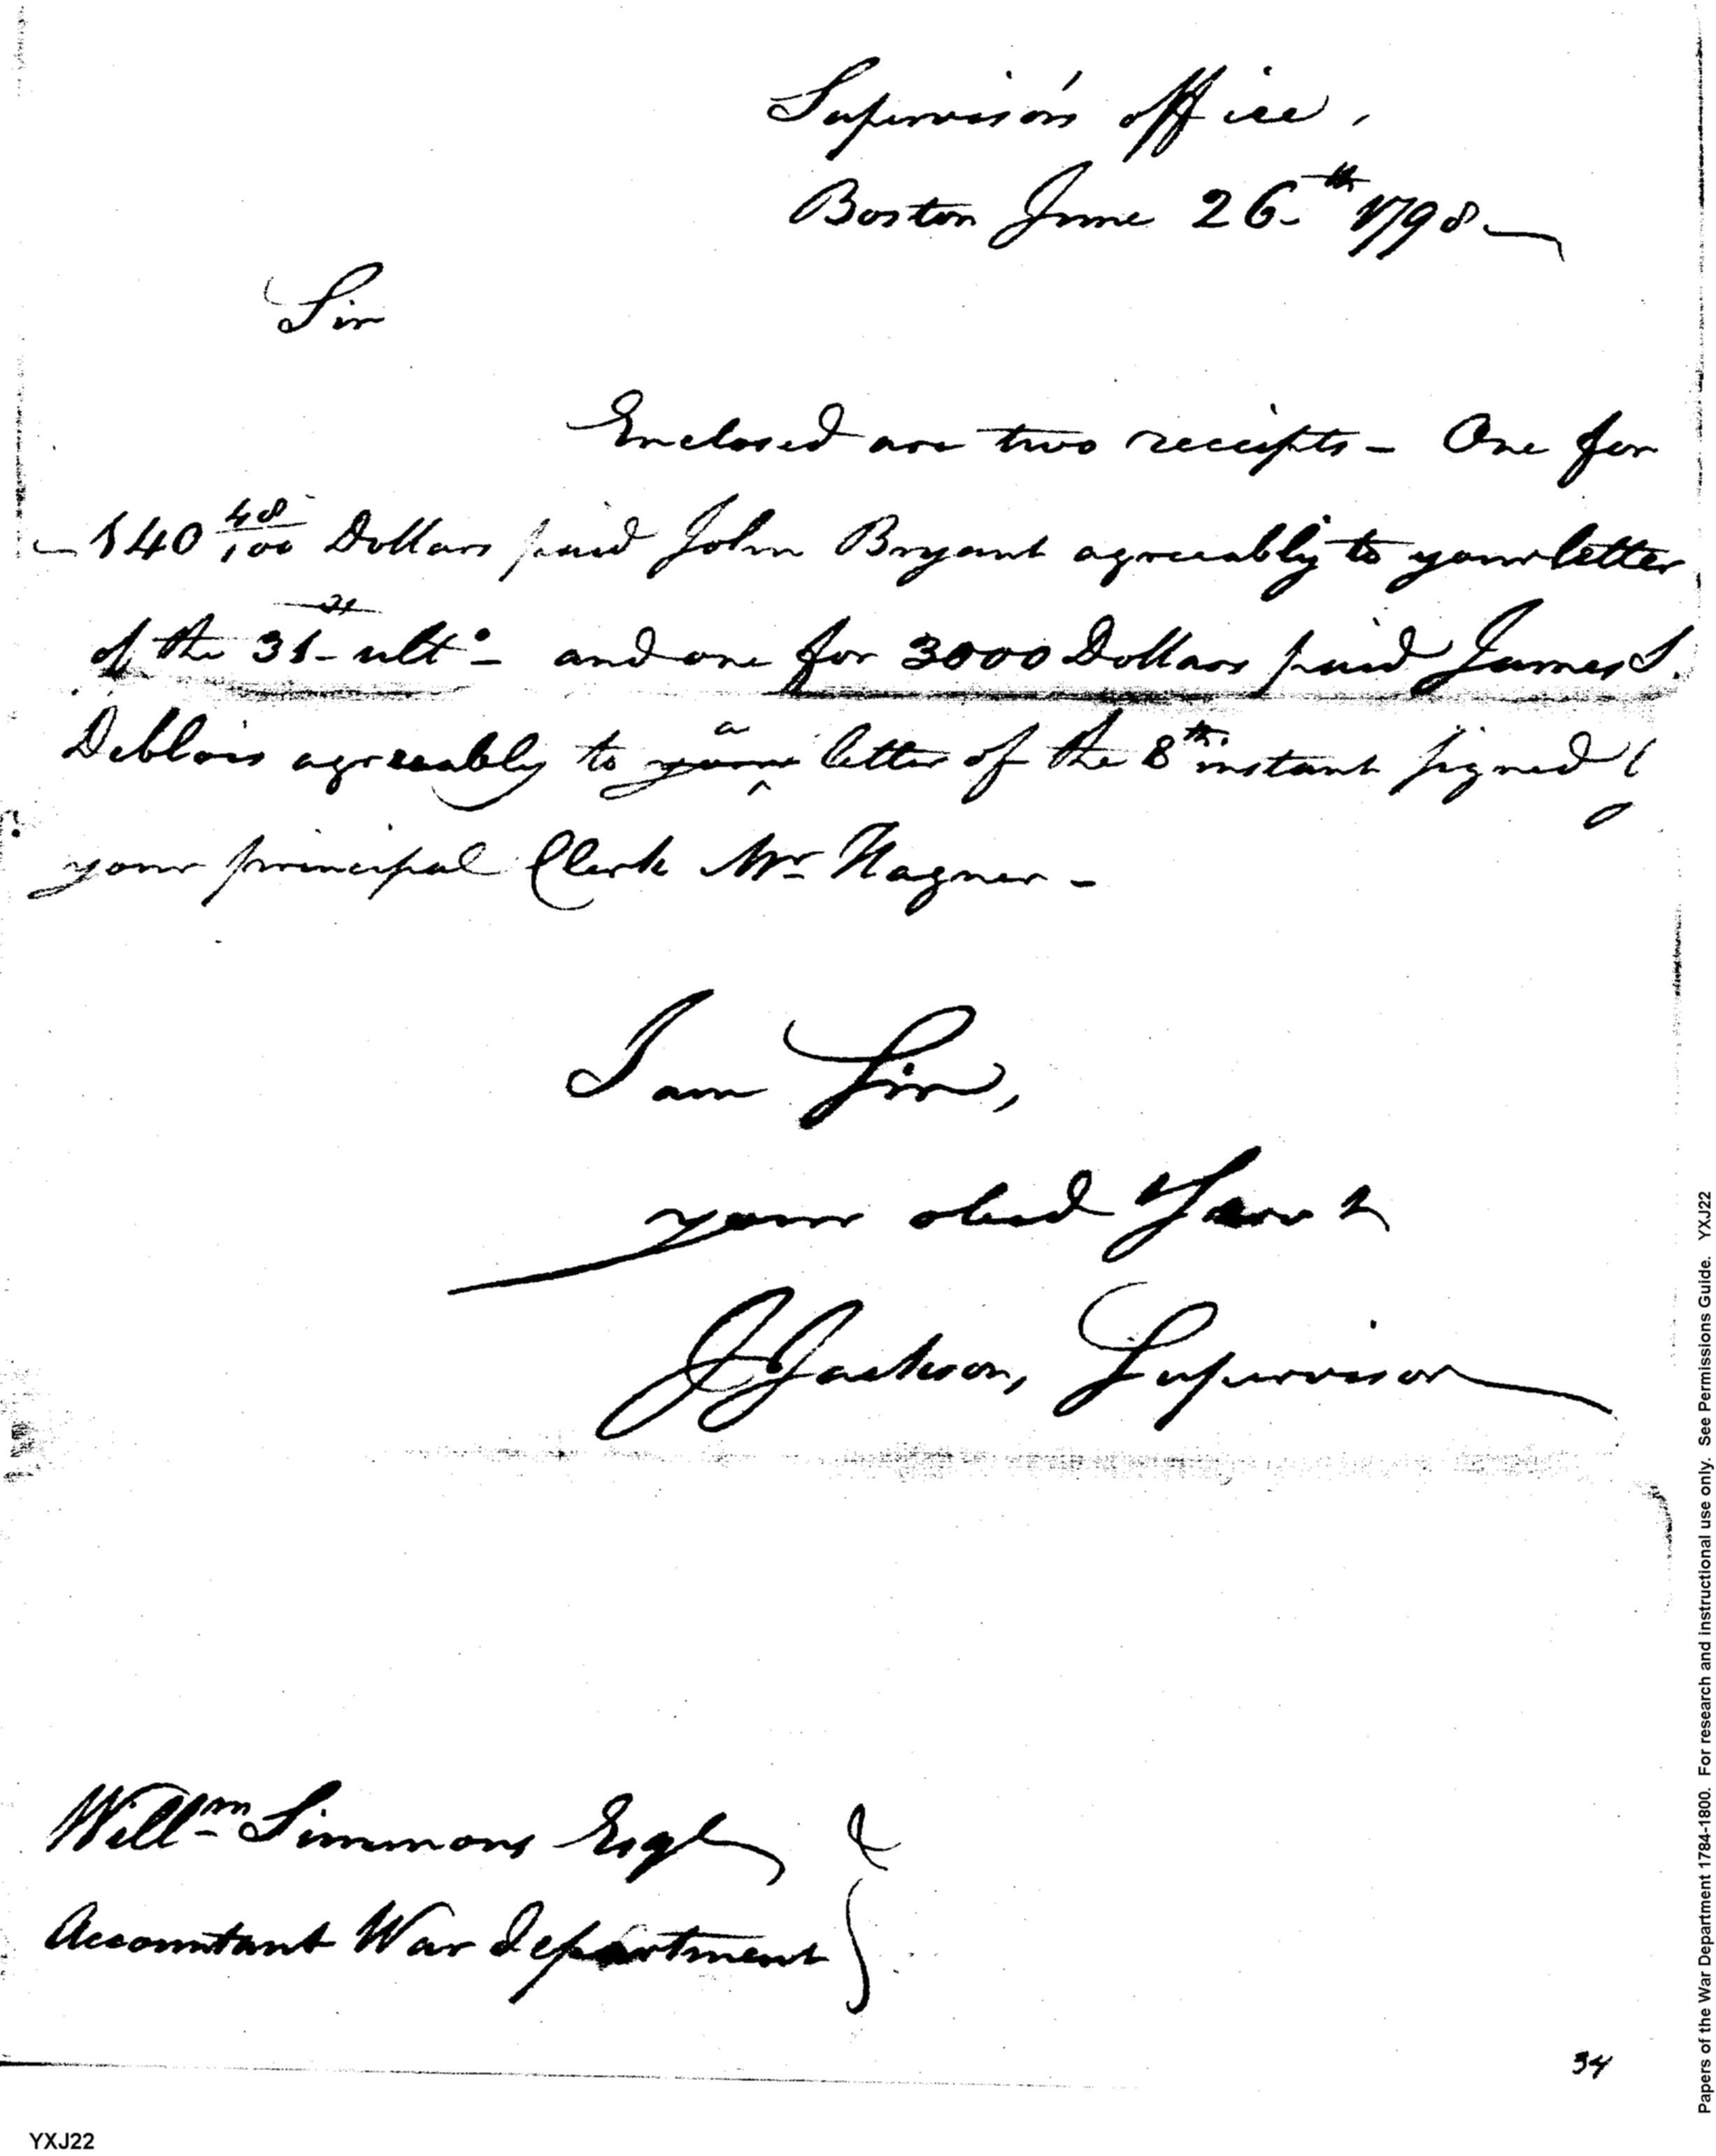 Supervisor's office,
Boston June 26th 1798
Sir
Enclosed are two receipts - One for
140 48/100 Dollars paid John Bryant agreeably to your letter
of the 31st ulto - and one for 3000 Dollars paid James S.
Deblois agreeably to your a letter of the 8th instant signed by
your principal Clerk Mr Nagner -
I am Sir,
your obed Servt
J Jackson, Supervisor
Willm Simmons Esqr
Accountant War department
34
YXJ22
Papers of the War Department 1784-1800. For research and instructional use only. See Permissions Guide. YXJ22